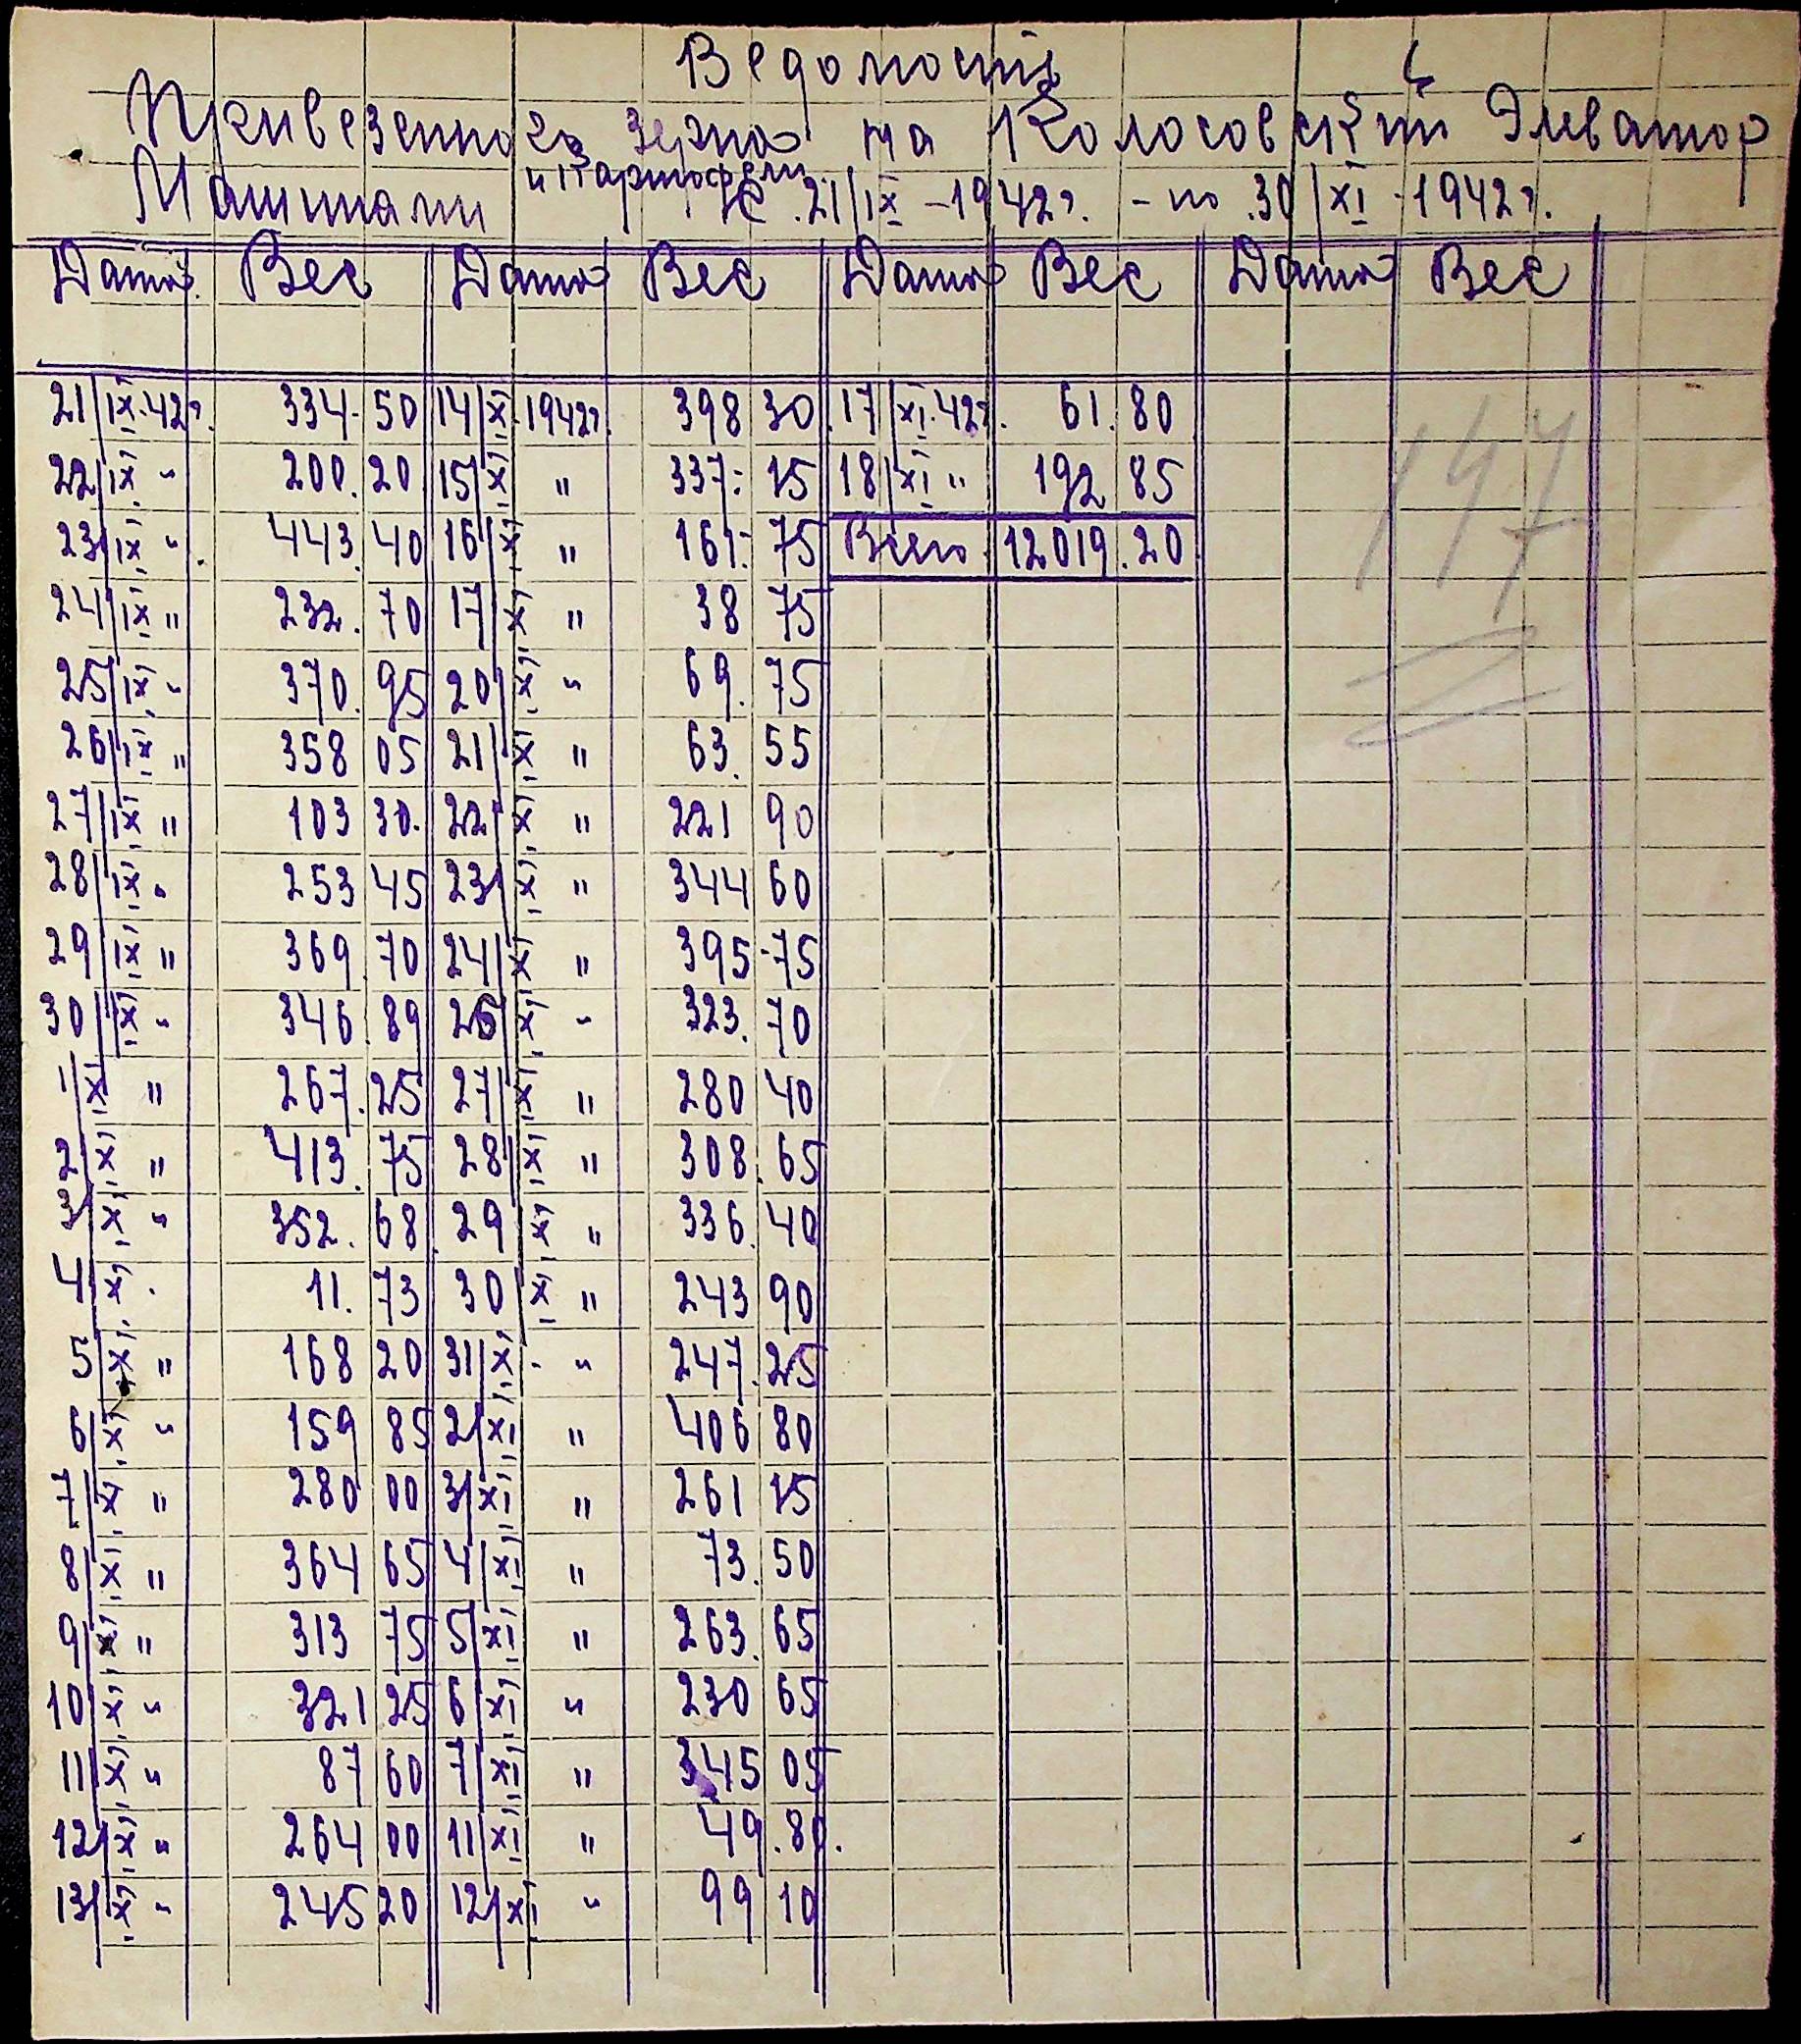 Ведомость
Привезенного зерна на Колосовский Элеватор
и Картофели
Машинами с 21/IX-1942г. - по 30/XI-1942г.
Дата Вес Дата Вес Дата Вес Дата Вес
21/IX.42г. 334.50 14/X.1942г. 398 30 17/XI.42г. 61.80
22/IX " 200.20 15/X " 337.15 18/XI " 192 85
23/IX " 443.40 16/X " 161.75 Всего 12019.20
24/IX " 232.70 17/X " 38 75
25/IX " 370.95 20/X " 69.75
26/IX " 358 05 21/X " 63.55
27/IX " 103 30. 22/X " 221 90
28/IX " 253 45 23/X " 344 60
29/IX " 369.70 24/X " 395.75
30/IX " 346.89 26/X " 323.70
1/X " 267.25 27/X " 280 40
2/X " 413.75 28/X " 308.65
3/X " 352.68 29/X " 336.40
4/X . 11.73 30/X " 243 90
5/X " 168 20 31/X " 247.25
6/X " 159 85 2/XI " 406 80
7/X " 280 00 3/XI " 261 15
8/X " 364 65 4/XI " 73.50
9/X " 313 75 5/XI " 263.65
10/X " 321 25 6/XI " 230 65
11/X " 87 60 7/XI " 345 05
12/X " 264 00 11/XI " 49.80.
13/X " 245 20 12/XI " 99 10
147